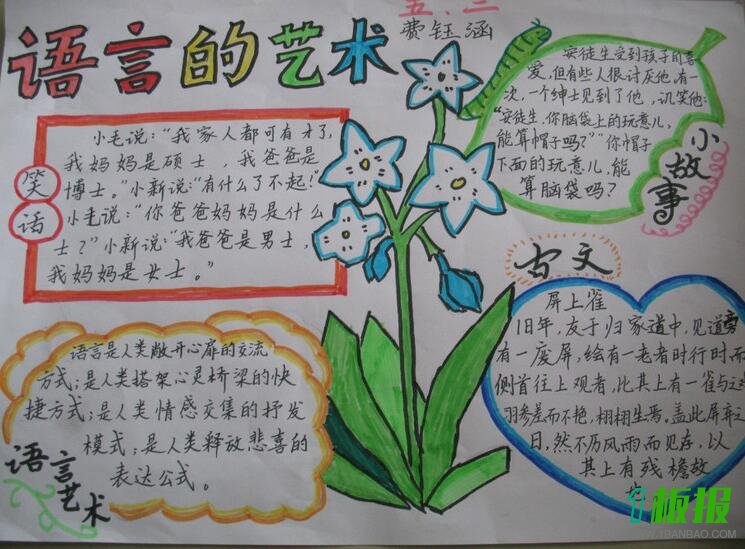 语言的艺术
五.三
费钰涵
笑话
小毛说:“我家人都可有才了,
我妈妈是硕士，我爸爸是
博士。”小新说:“有什么了不起!”
小毛说:“你爸爸妈妈是什么
士?”小新说:“我爸爸是男士，
我妈妈是女士。”
安徒生受到孩子的喜
爱,但有些人很讨厌他,有一
次,一个绅士见到了他，讥笑他:
“安徒生,你脑袋上的玩意儿,
能算帽子吗?”“你帽子
下面的玩意儿,能
算脑袋吗?
小故事
古文
屏上雀
旧年,友于归家道中,见道旁
有一废屏,绘有一老者时行时而
侧首往上观者,比其上有一雀与
羽参差而不艳,栩栩生焉。盖此屏弃之
日,然不历风雨而见存,以
其上有残檐故
语言是人类敞开心扉的交流
方式;是人类搭架心灵桥梁的快
捷方式;是人类情感交集的抒发
模式;是人类释放悲喜的
表达公式。
语言艺术
板报
WWW.1BANBAO.COM